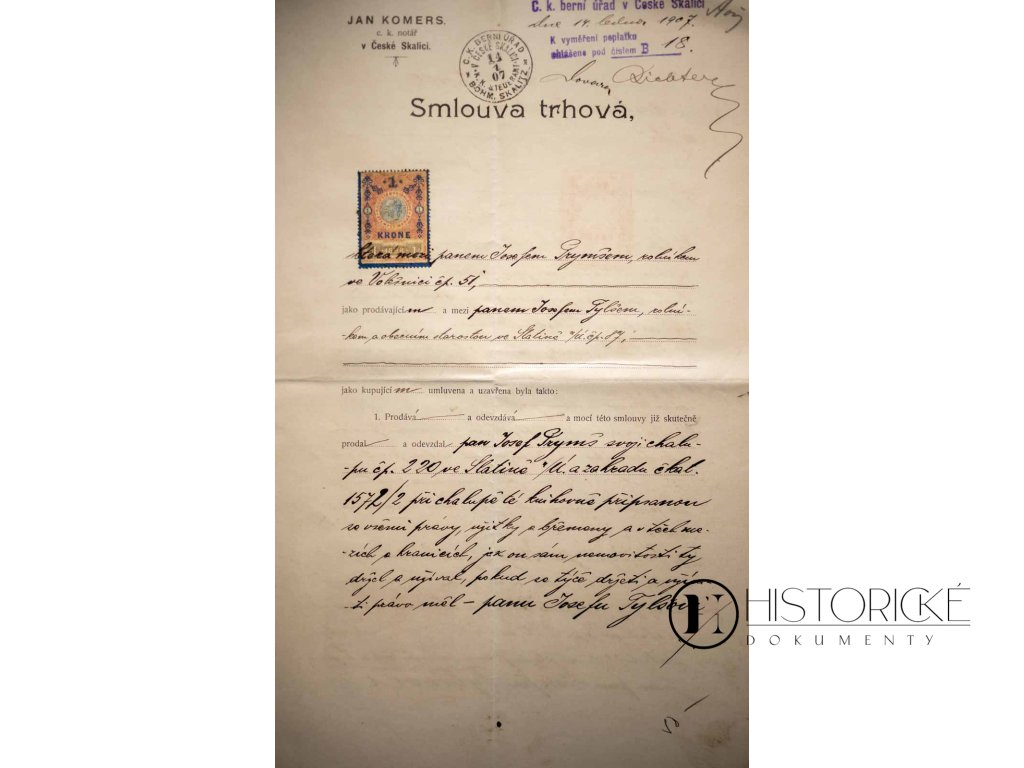 JAN KOMERS.
c. k. notář
v České Skalici.
C. k. berní úřad v České Skalici
dne 14. ledna 1907.
K vyměření poplatku
ohlášeno pod číslem B 18.
C. K. BERNÍ ÚŘAD
V ČESKÉ SKALICI
14
1
07
K. K. STEUERAMT
BÖHM. SKALITZ
Smlouva trhová,
1
KRONE
která mezi panem Josefem Prymšem, rolníkem
ve Vokšnici čp. 51,
jako prodávajícím a mezi panem Josefem Tylšem, rolní-
kem, a obecním starostou ve Slatině n/Ú. čp. 87,
jako kupujícím umluvena a uzavřena byla takto:
1. Prodává a odevzdává a mocí této smlouvy již skutečně
prodal a odevzdal pan Josef Prymš svoji chalu-
pu čp. 220 ve Slatině n/Ú. a zahradu čkat.
1572/2 při chalupě té knihovně připsanou
se všemi právy, užitky a břemeny a v těch me-
zích a hranicích, jak on sám nemovitosti ty
držel a užíval, pokud se týče držeti a užíva-
ti právo měl – panu Josefu Tylšovi
HISTORICKÉ
DOKUMENTY